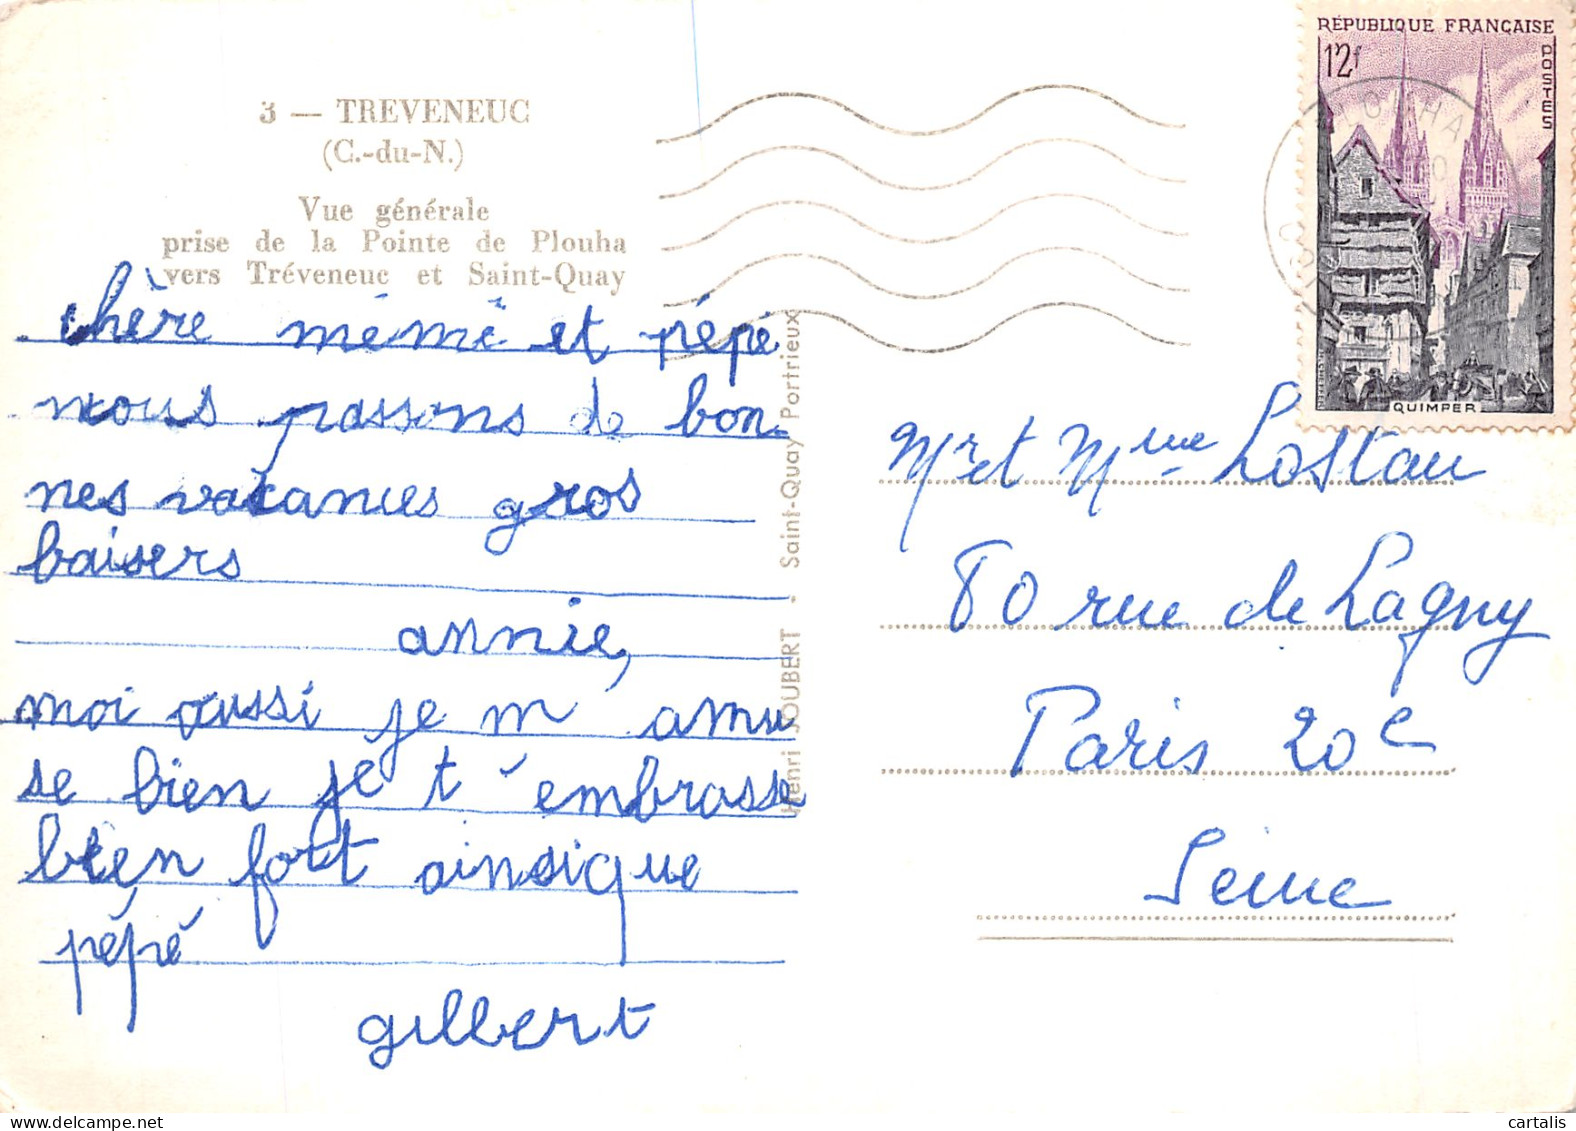 3 — TREVENEUC
(C.-du-N.)
Vue générale
prise de la Pointe de Plouha
vers Tréveneuc et Saint-Quay
chère mémé et pépé
nous passons de bon-
nes vacances gros
baisers
annie,
moi aussi je m amu
se bien je t'embrasse
bien fort ainsique
pépé
gilbert
Henri JOUBERT - Saint-Quay Portrieux
RÉPUBLIQUE FRANÇAISE
12f
POSTES
QUIMPER
Mr et Mme Lostau
80 rue de Lagny
Paris 20e
Seine
cartalis